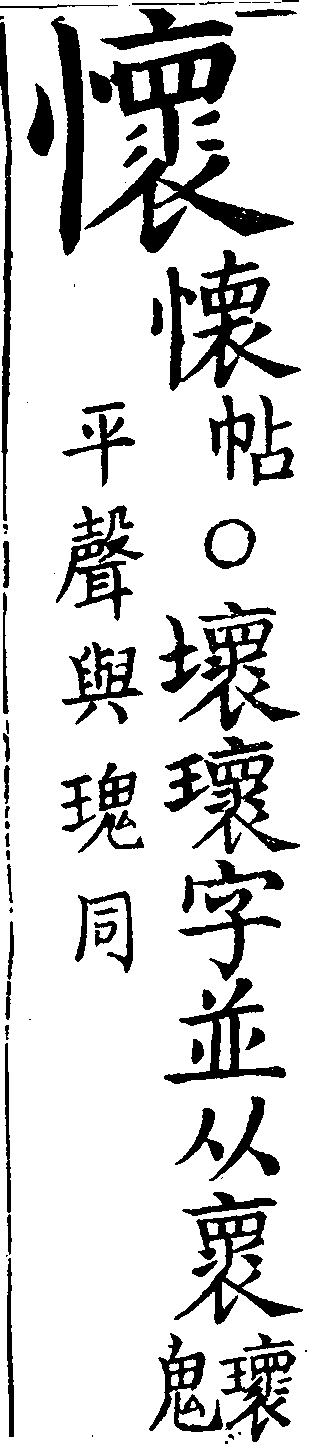 懷
懐帖○壞瓌字並从褱瓌鬼
平聲與瑰同